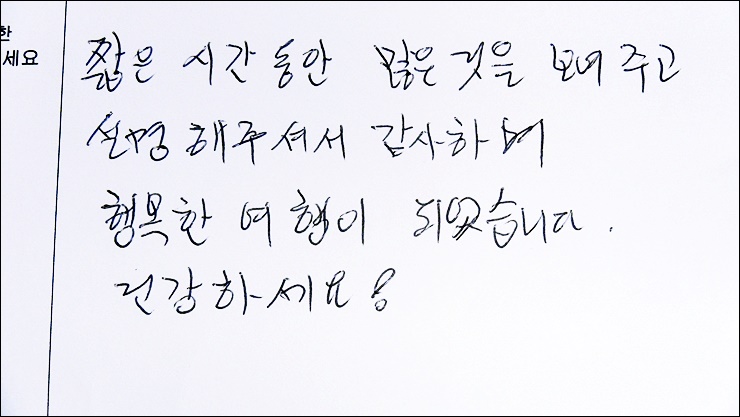 한
세요
짧은 시간 동안 많은 것을 보여 주고
설명해주셔서 감사하며
행복한 여행이 되었습니다.
건강하세요!